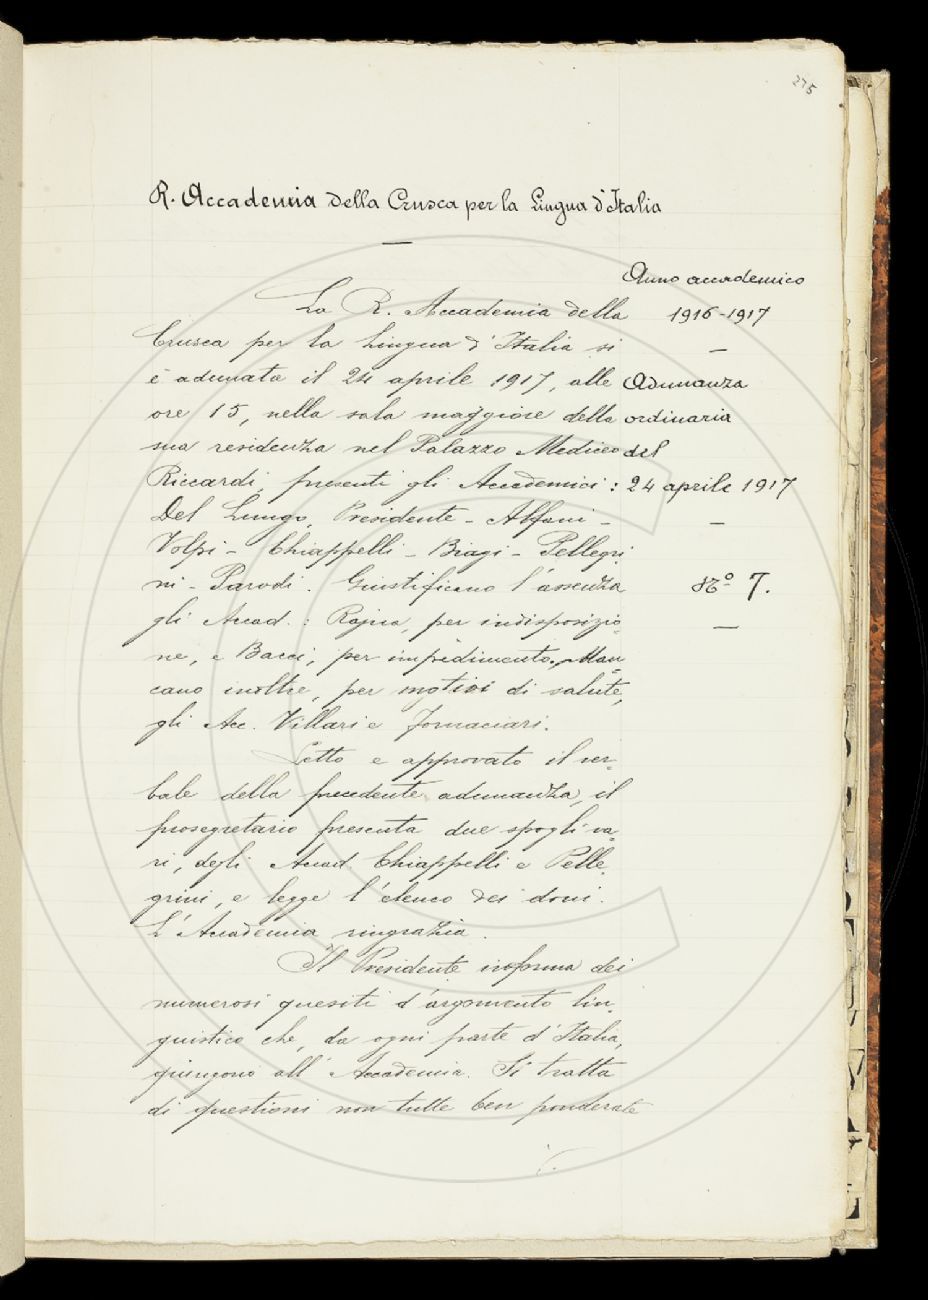 275
R. Accademia della Crusca per la Lingua d'Italia
Anno accademico
1916-1917
Adunanza
ordinaria
del
24 aprile 1917
Nº 7.
La R. Accademia della
Crusca per la Lingua d'Italia si
è adunata il 24 aprile 1917, alle
ore 15, nella sala maggiore della
sua residenza nel Palazzo Mediceo
Riccardi, presenti gli Accademici:
Del Lungo, Presidente - Alfani -
Volpi - Chiappelli - Biagi - Pellegri
ni - Parodi. Giustificano l'assenza
gli Accad.: Rajna, per indisposizio=
ne, e Bacci, per impedimento. Man=
cano inoltre, per motivi di salute,
gli Acc. Villari e Fornaciari.
Letto e approvato il ver=
bale della precedente adunanza, il
prosegretario presenta due spogli va=
ri, degli Accad. Chiappelli e Pelle=
grini, e legge l'elenco dei doni.
L'Accademia ringrazia.
Il Presidente informa dei
numerosi quesiti d'argomento lin=
guistico che, da ogni parte d'Italia,
giungono all'Accademia. Si tratta
di questioni non tutte ben ponderate